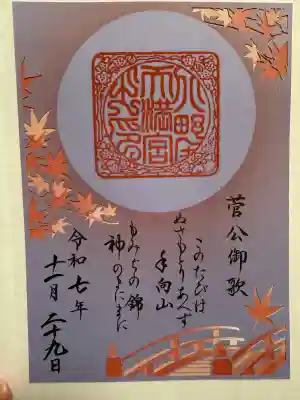 北野
天満宮
菅公御歌
このたびは
ぬさもとりあへず
手向山
もみぢの錦
神のまにまに
令和七年
十一月二十九日